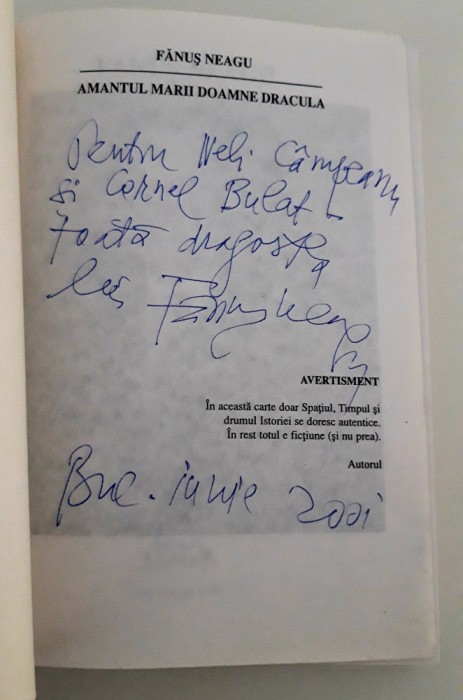 FĂNUŞ NEAGU
AMANTUL MARII DOAMNE DRACULA
Pentru Neli Câmpeanu
si Cornel Bulat
toată dragostea
lui Fănuş Neagu
AVERTISMENT
În această carte doar Spaţiul, Timpul şi
drumul Istoriei se doresc autentice.
În rest totul e ficţiune (şi nu prea).
Autorul
Buc. iunie 2001